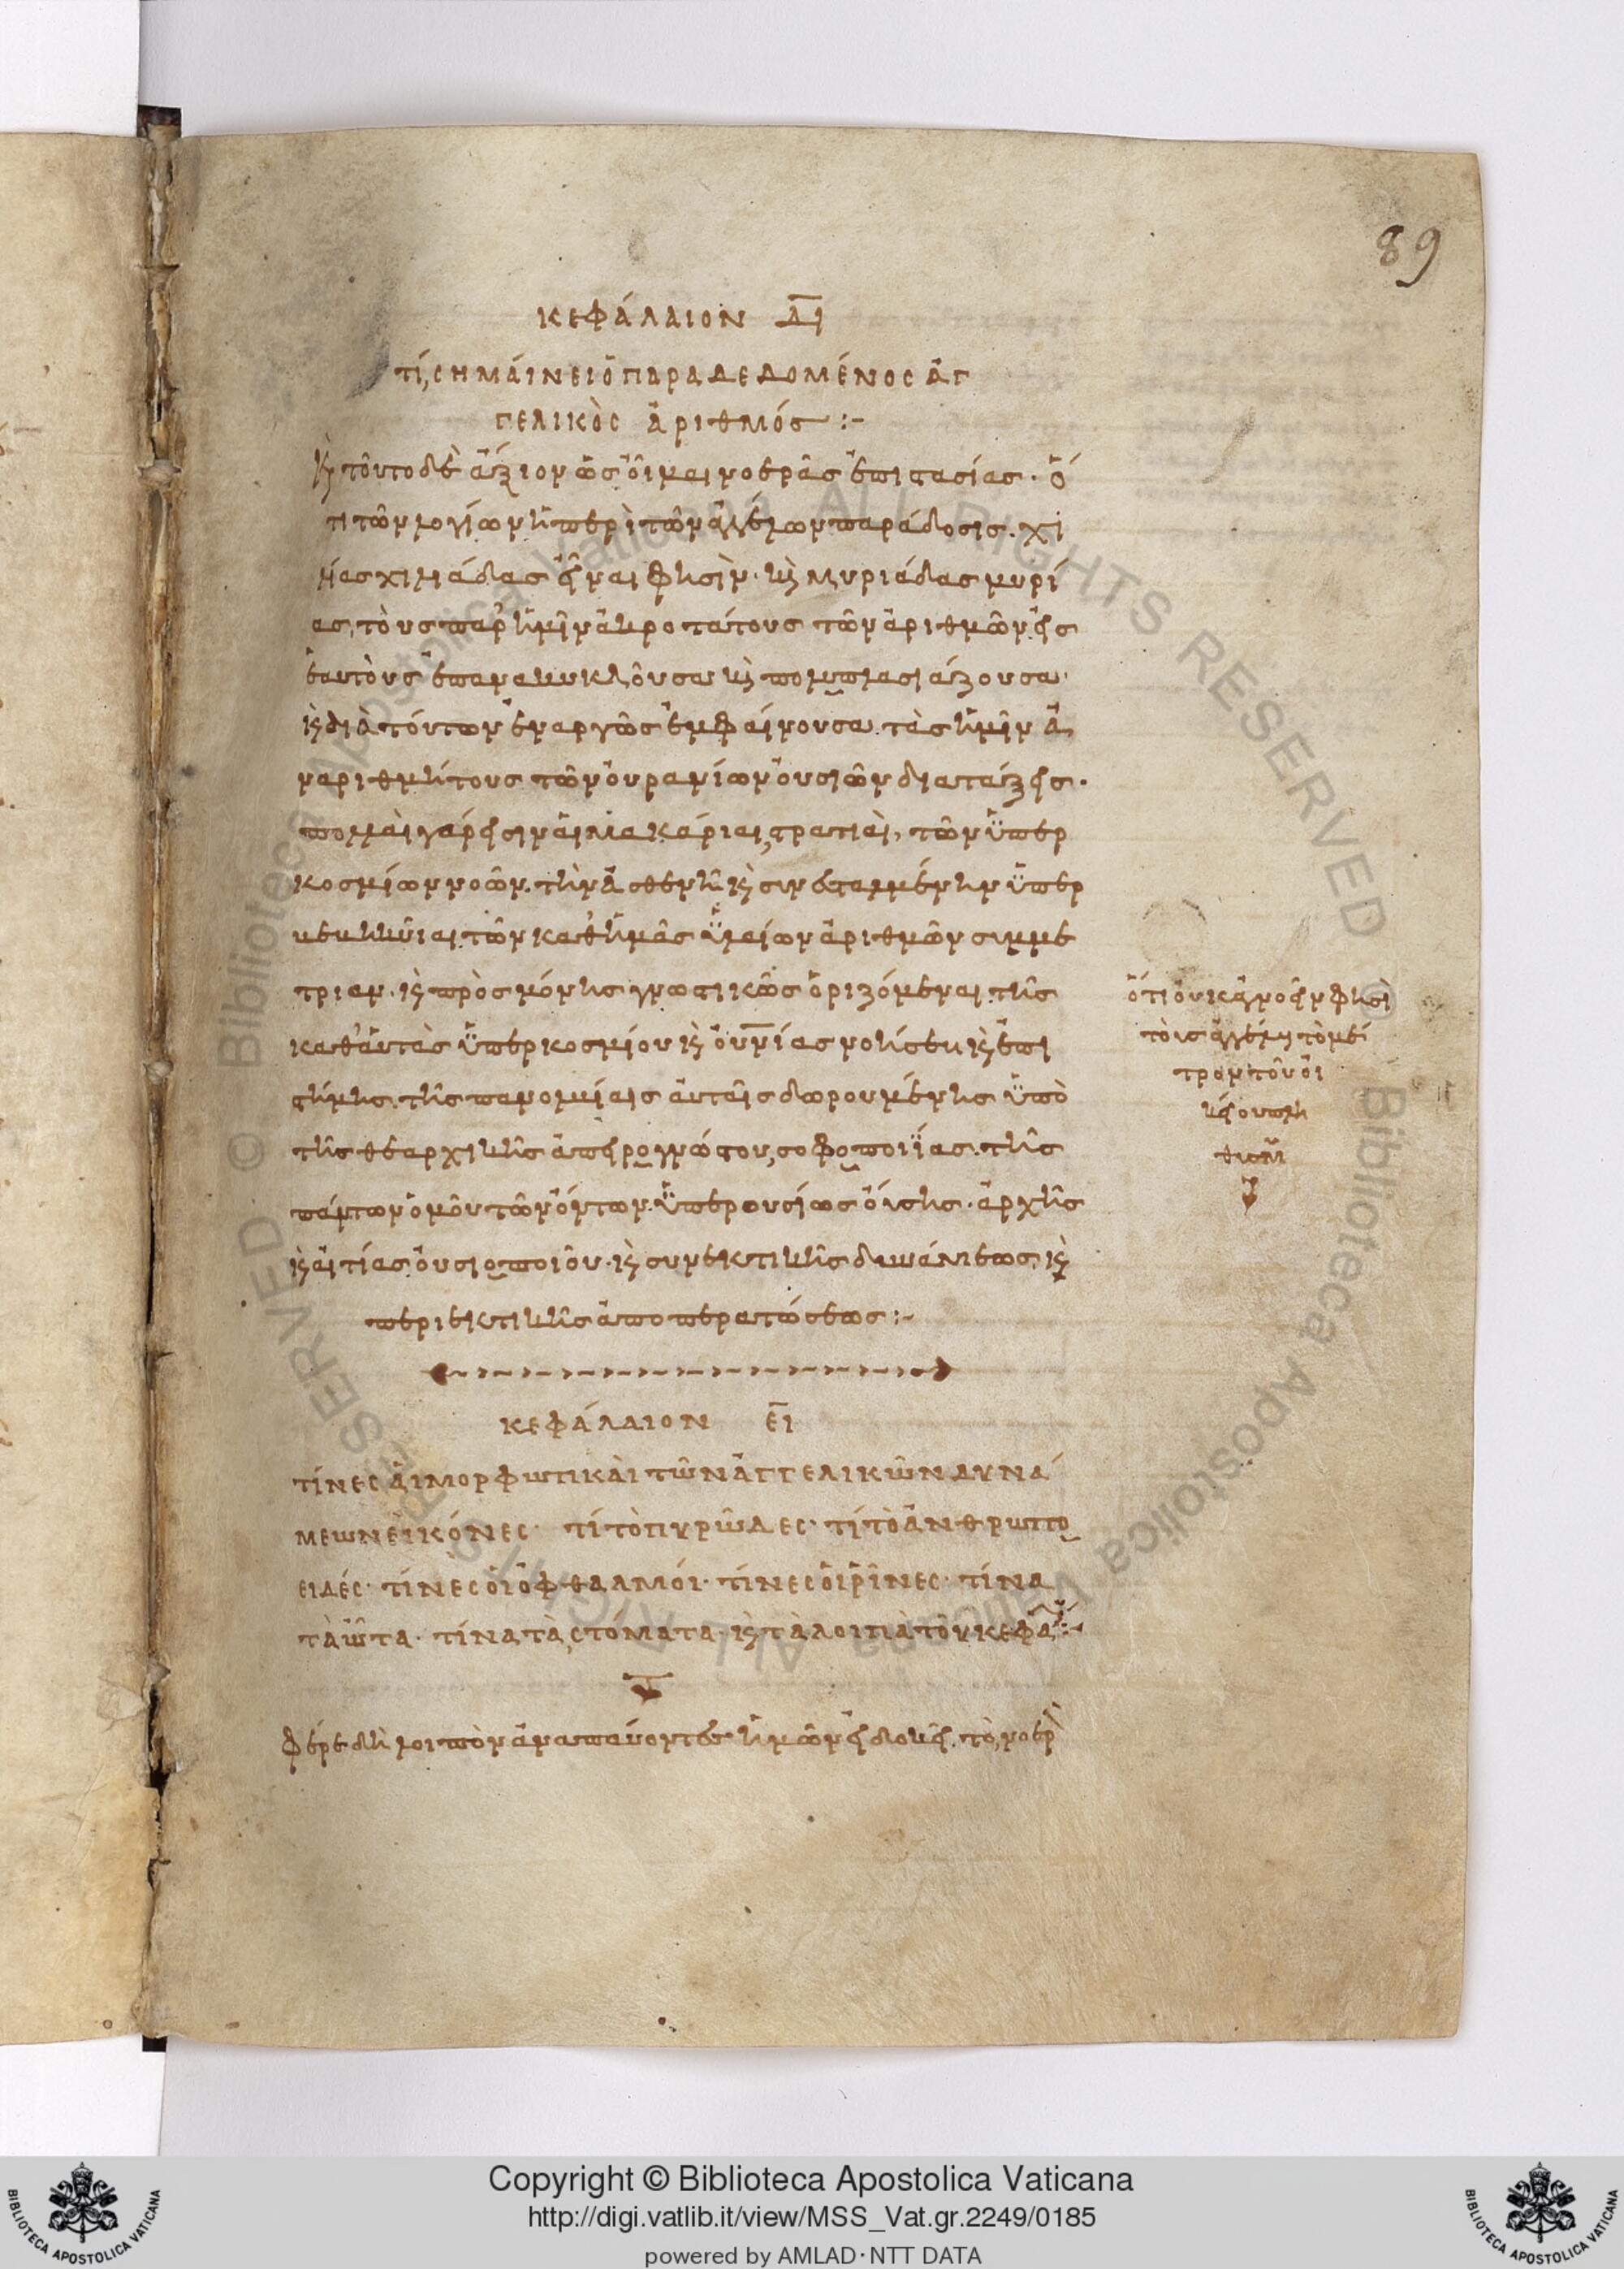 89
ΚΕΦΆΛΑΙΟΝ ΔΙ
ΤΊ ΣΗΜΑΊΝΕΙ Ὁ ΠΑΡΑΔΕΔΟΜΈΝΟΣ ἈΓ
ΓΕΛΙΚῸΣ ἈΡΙΘΜΌΣ :-
Κ(αὶ) τοῦτο δὲ ἄξιον ὡς οἶμαι νοερᾶς ἐπιστασίας · ὅ
τι τῶν λογίων ἡ περὶ τῶν ἀγγέλων παράδοσις · χι
λίας χιλιάδας εἶναι φησὶν · κ(αὶ) μυριάδας μυρί
ας, τοὺς παρ' ἡμῖν ἀκροτάτους τῶν ἀριθμῶν εἰς
ἑαυτοὺς ἐπανακυκλοῦσα κ(αὶ) πολλαπλασιάζουσα ·
κ(αὶ) διὰ τούτων ἐναργῶς ἐμφαίνουσα τὰς ἡμῖν ἀ
ναριθμήτους τῶν οὐρανίων οὐσιῶν διατάξεις ·
πολλαὶ γάρ εἰσιν αἱ μακάριαι στρατιαὶ, τῶν ὑπερ
κοσμίων νοῶν · τὴν ἀσθενῆ κ(αὶ) συνεσταλμένην ὑπερ
τῶν καθ' ἡμᾶς ὑλαίων ἀριθμῶν συμμε
τρίαν · κ(αὶ) πρὸς μόνης γνωστικῶς ὁριζόμεναι τῆς
κατ' αὐτὰς ὑπερκοσμίου κ(αὶ) οὐνίας νοήσεως κ(αὶ) ἐπι
στήμης τῆς πανολβίαις αὐταῖς δωρουμένης ὑπὸ
τῆς θεαρχικῆς ἀπειρογνώστου σοφοποιΐας · τῆς
πάντων ὁμοῦ τῶν ὄντων ὑπερουσίως οὔσης · ἀρχῆς
κ(αὶ) αἰτίας οὐσιοποιοῦ · κ(αὶ) συνεκτικῆς δυνάμεως κ(αὶ)
περιεκτικῆς ἀποπερατώσεως :-
ΚΕΦΆΛΑΙΟΝ ΕΙ
ΤΊΝΕΣ ΑἹ ΜΟΡΦΩΤΙΚΑῚ ΤΩ͂Ν ἈΓΓΕΛΙΚΩ͂Ν ΔΥΝΆ
ΜΕΩΝ ΕἸΚΌΝΕΣ · ΤΊ ΤῸ ΠΥΡΩ͂ΔΕΣ · ΤΊ ΤῸ ἈΝΘΡΩΠΟ
ΕΙΔΈΣ · ΤΊΝΕΣ ΟἹ ὈΦΘΑΛΜΟΊ · ΤΊΝΕΣ ΑἹ ῬΙ͂ΝΕΣ · ΤΊΝΑ
ΤᾺ Ὦ͂ΤΑ · ΤΊΝΑ ΤᾺ ΣΤΌΜΑΤΑ · Κ(ΑῚ) ΤᾺ ΛΟΙΠᾺ ΤΟΥ͂ ΚΕΦΑ :-
φέρε δὴ λοιπὸν ἀναπαύοντες ἡμῶν εἰ δοκεῖ τὸ νοερὸν
ὅτι οὐκ ἀγνοεῖν φησὶ
τοὺς ἀγγέλους τὸ μέ
τρον τοῦ οἰ
κείου πλή
θους
Copyright © Biblioteca Apostolica Vaticana
http://digi.vatlib.it/view/MSS_Vat.gr.2249/0185
powered by AMLAD·NTT DATA
BIBLIOTECA APOSTOLICA VATICANA
BIBLIOTECA APOSTOLICA VATICANA